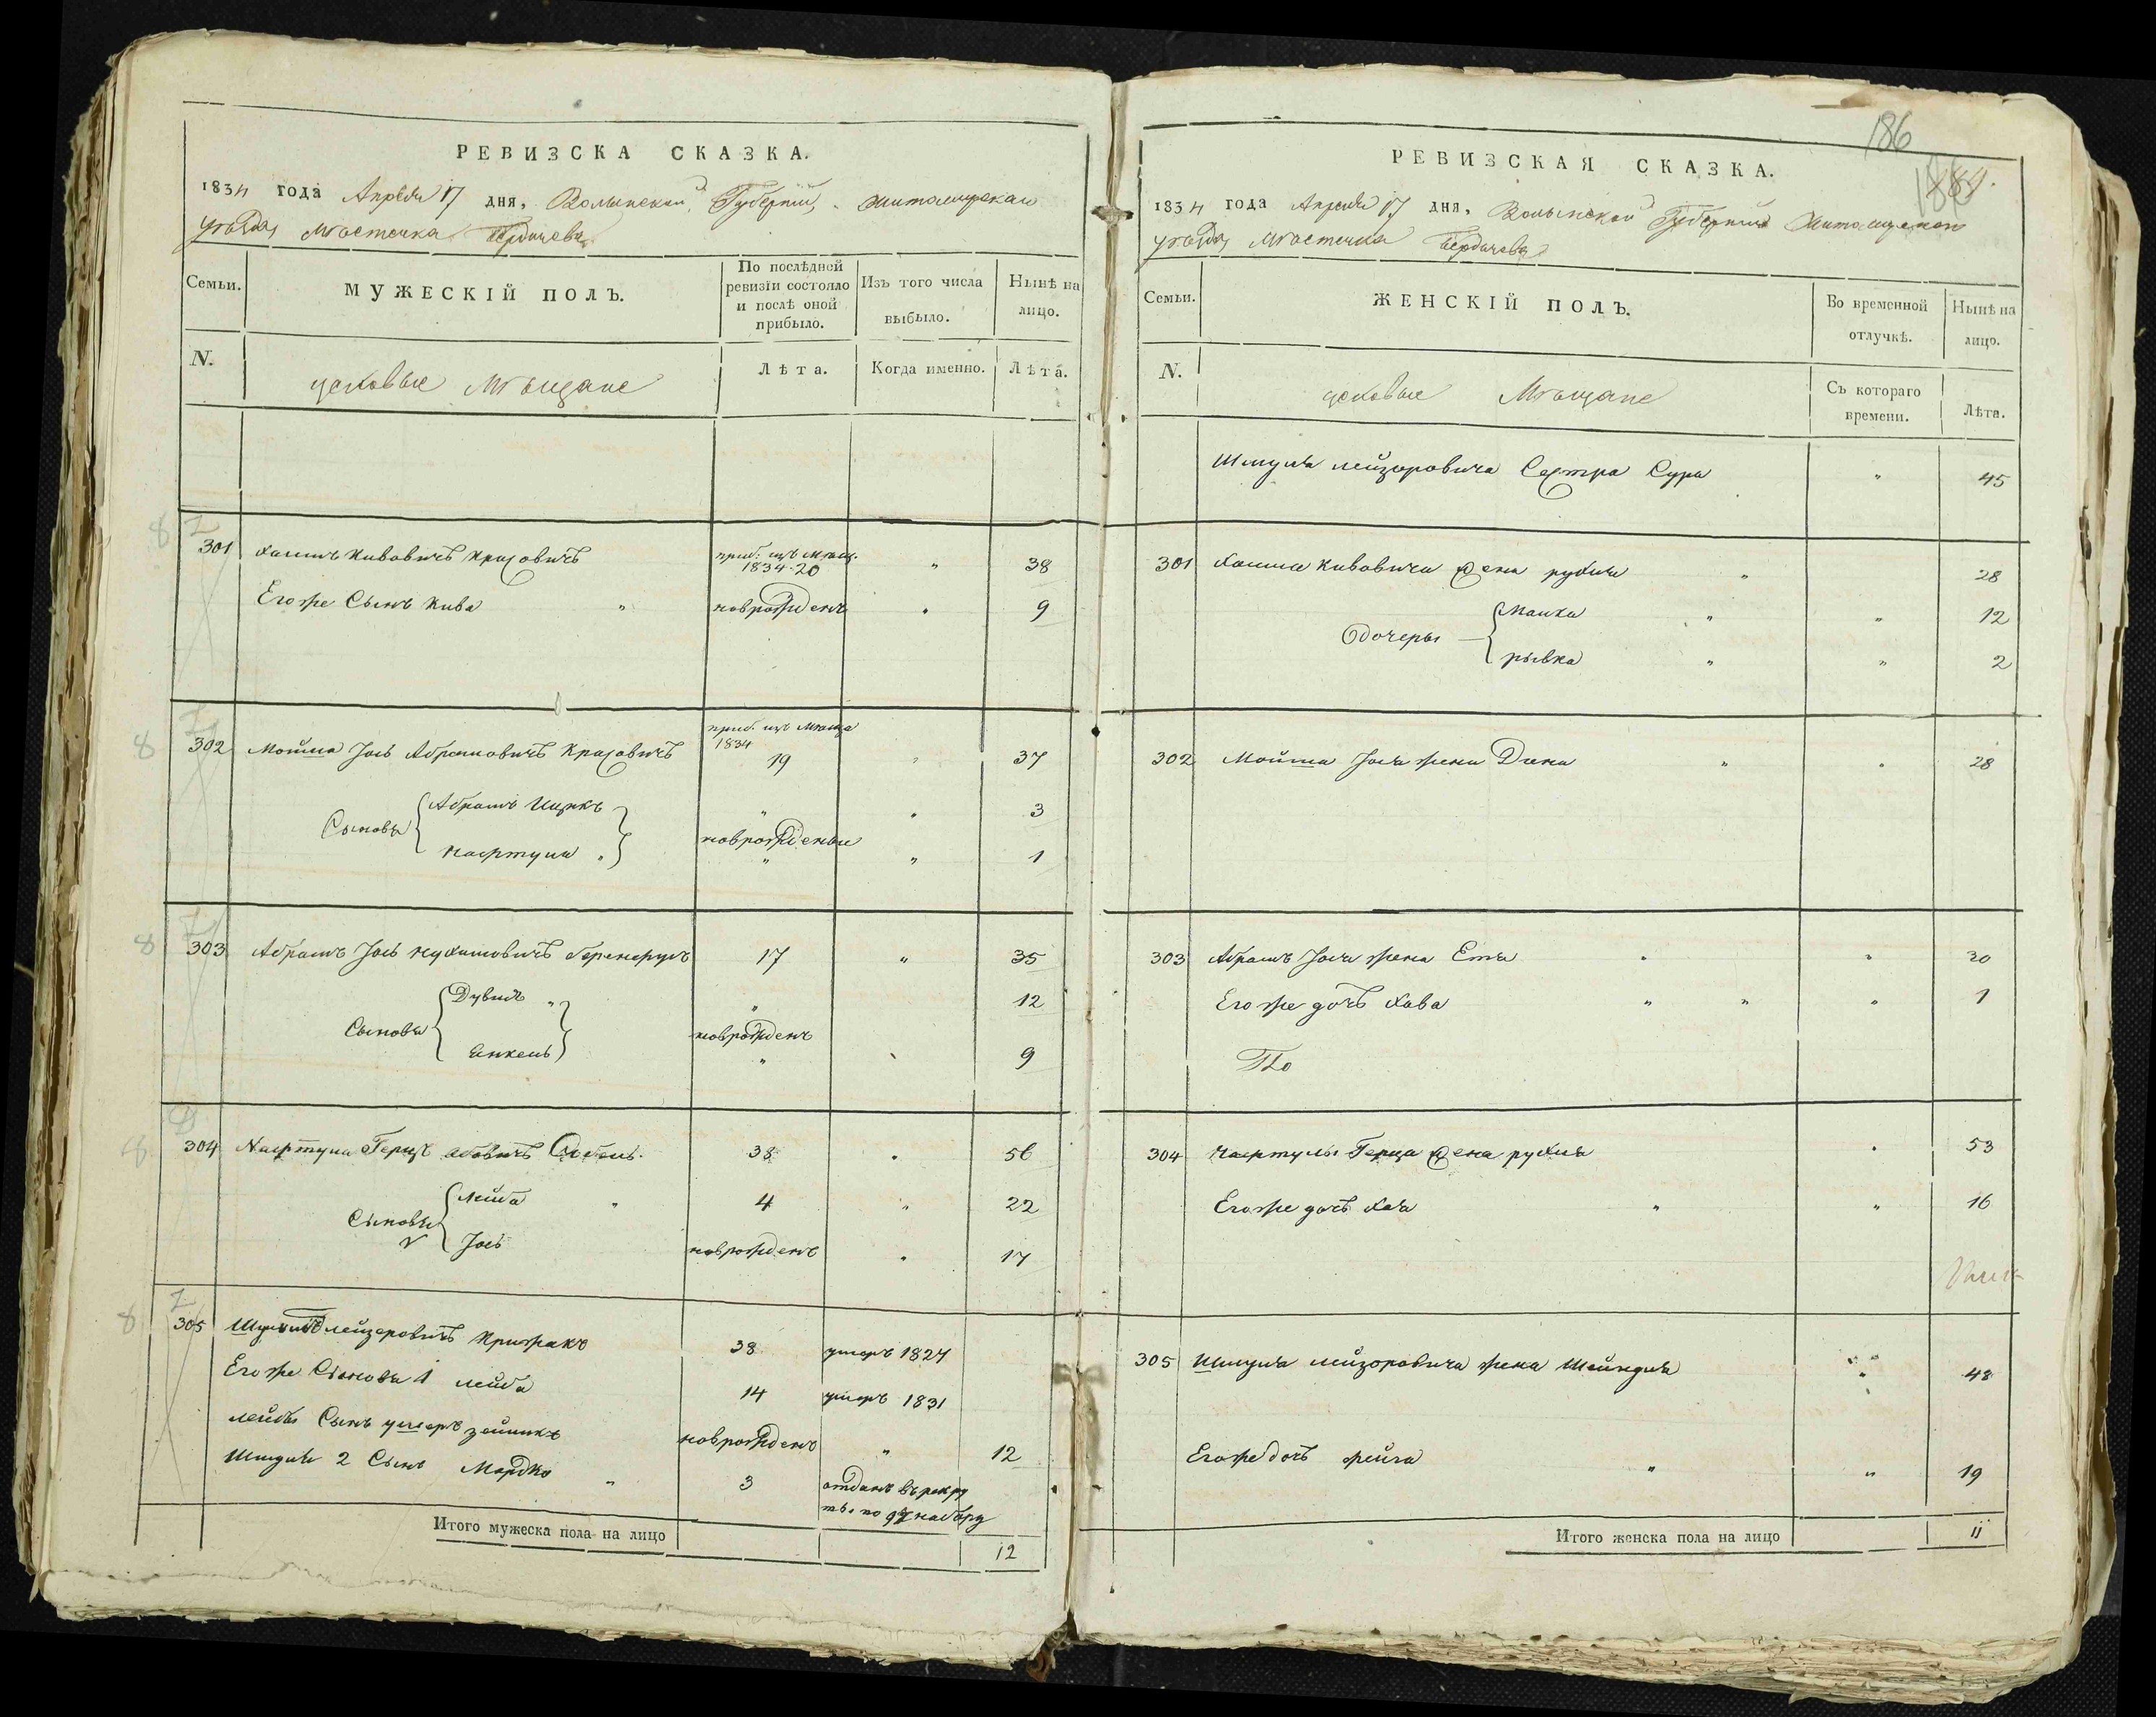 РЕВИЗСКА СКАЗКА.
1834 года Апреля 17 дня, Волынской Губернии, Житомирскаго
уѣзда, Мѣстечка Бердичева
Семьи.
МУЖЕСКІЙ ПОЛЪ.
По послѣдней
ревизіи состояло
и послѣ оной
прибыло.
Изъ того числа
выбыло.
Нынѣ на
лицо.
N.
цеховые Мѣщане
Лѣта.
Когда именно.
Лѣта.
301 Хаимъ Кивовичъ 1834 20 " 38
Егоже Сынъ Кива " новрожденъ " 9
302 Мойша Іось Абрамовичъ 1834 19 " 37
Сыновья Абрамъ Ицикъ " " 3
новрожденые
Нафтула " " " 1
303 Абрамъ Іось Нухимовичъ 17 " 35
Дувидъ " " 12
Сыновья новрожденъ
Янкель " 9
304 Нафтула Герцъ 38 " 56
Лейба " 4 " 22
Сыновья
Іось новрожденъ " 17
305 Лейзеровичъ 38 умеръ 1827
Егоже Сыновья 1 Лейба 14 умеръ 1831
Лейбы Сынъ новрожденъ " 12
Шмуля 2 Сынъ Мордко " 3 отданъ въ рекру
ты по набору
Итого мужеска пола на лицо 12
186
РЕВИЗСКАЯ СКАЗКА.
1834 года Апреля 17 дня, Волынской Губернии Житомирскаго
уѣзда, Мѣстечка Бердичева
Семьи.
ЖЕНСКІЙ ПОЛЪ.
Во временной
отлучкѣ.
Нынѣ на
лицо.
N.
цеховые Мѣщане
Съ котораго
времени.
Лѣта.
Шмуля Лейзоровича Сестра Сура " 45
301 Хаима Кивовича жена рухля " 28
Малка " " 12
Дочеры
рывка " " 2
302 Мойша Іося жена Дина " " 28
303 Абрамъ Іося жена Етя " " 30
Егоже дочъ Хава " " " 1
304 Нафтулы Герца жена рухля " 53
Егоже дочъ Хая " " 16
305 Шмуля Лейзоровича жена Шейндля " 48
Егоже дочъ фейга " " 19
Итого женска пола на лицо 11